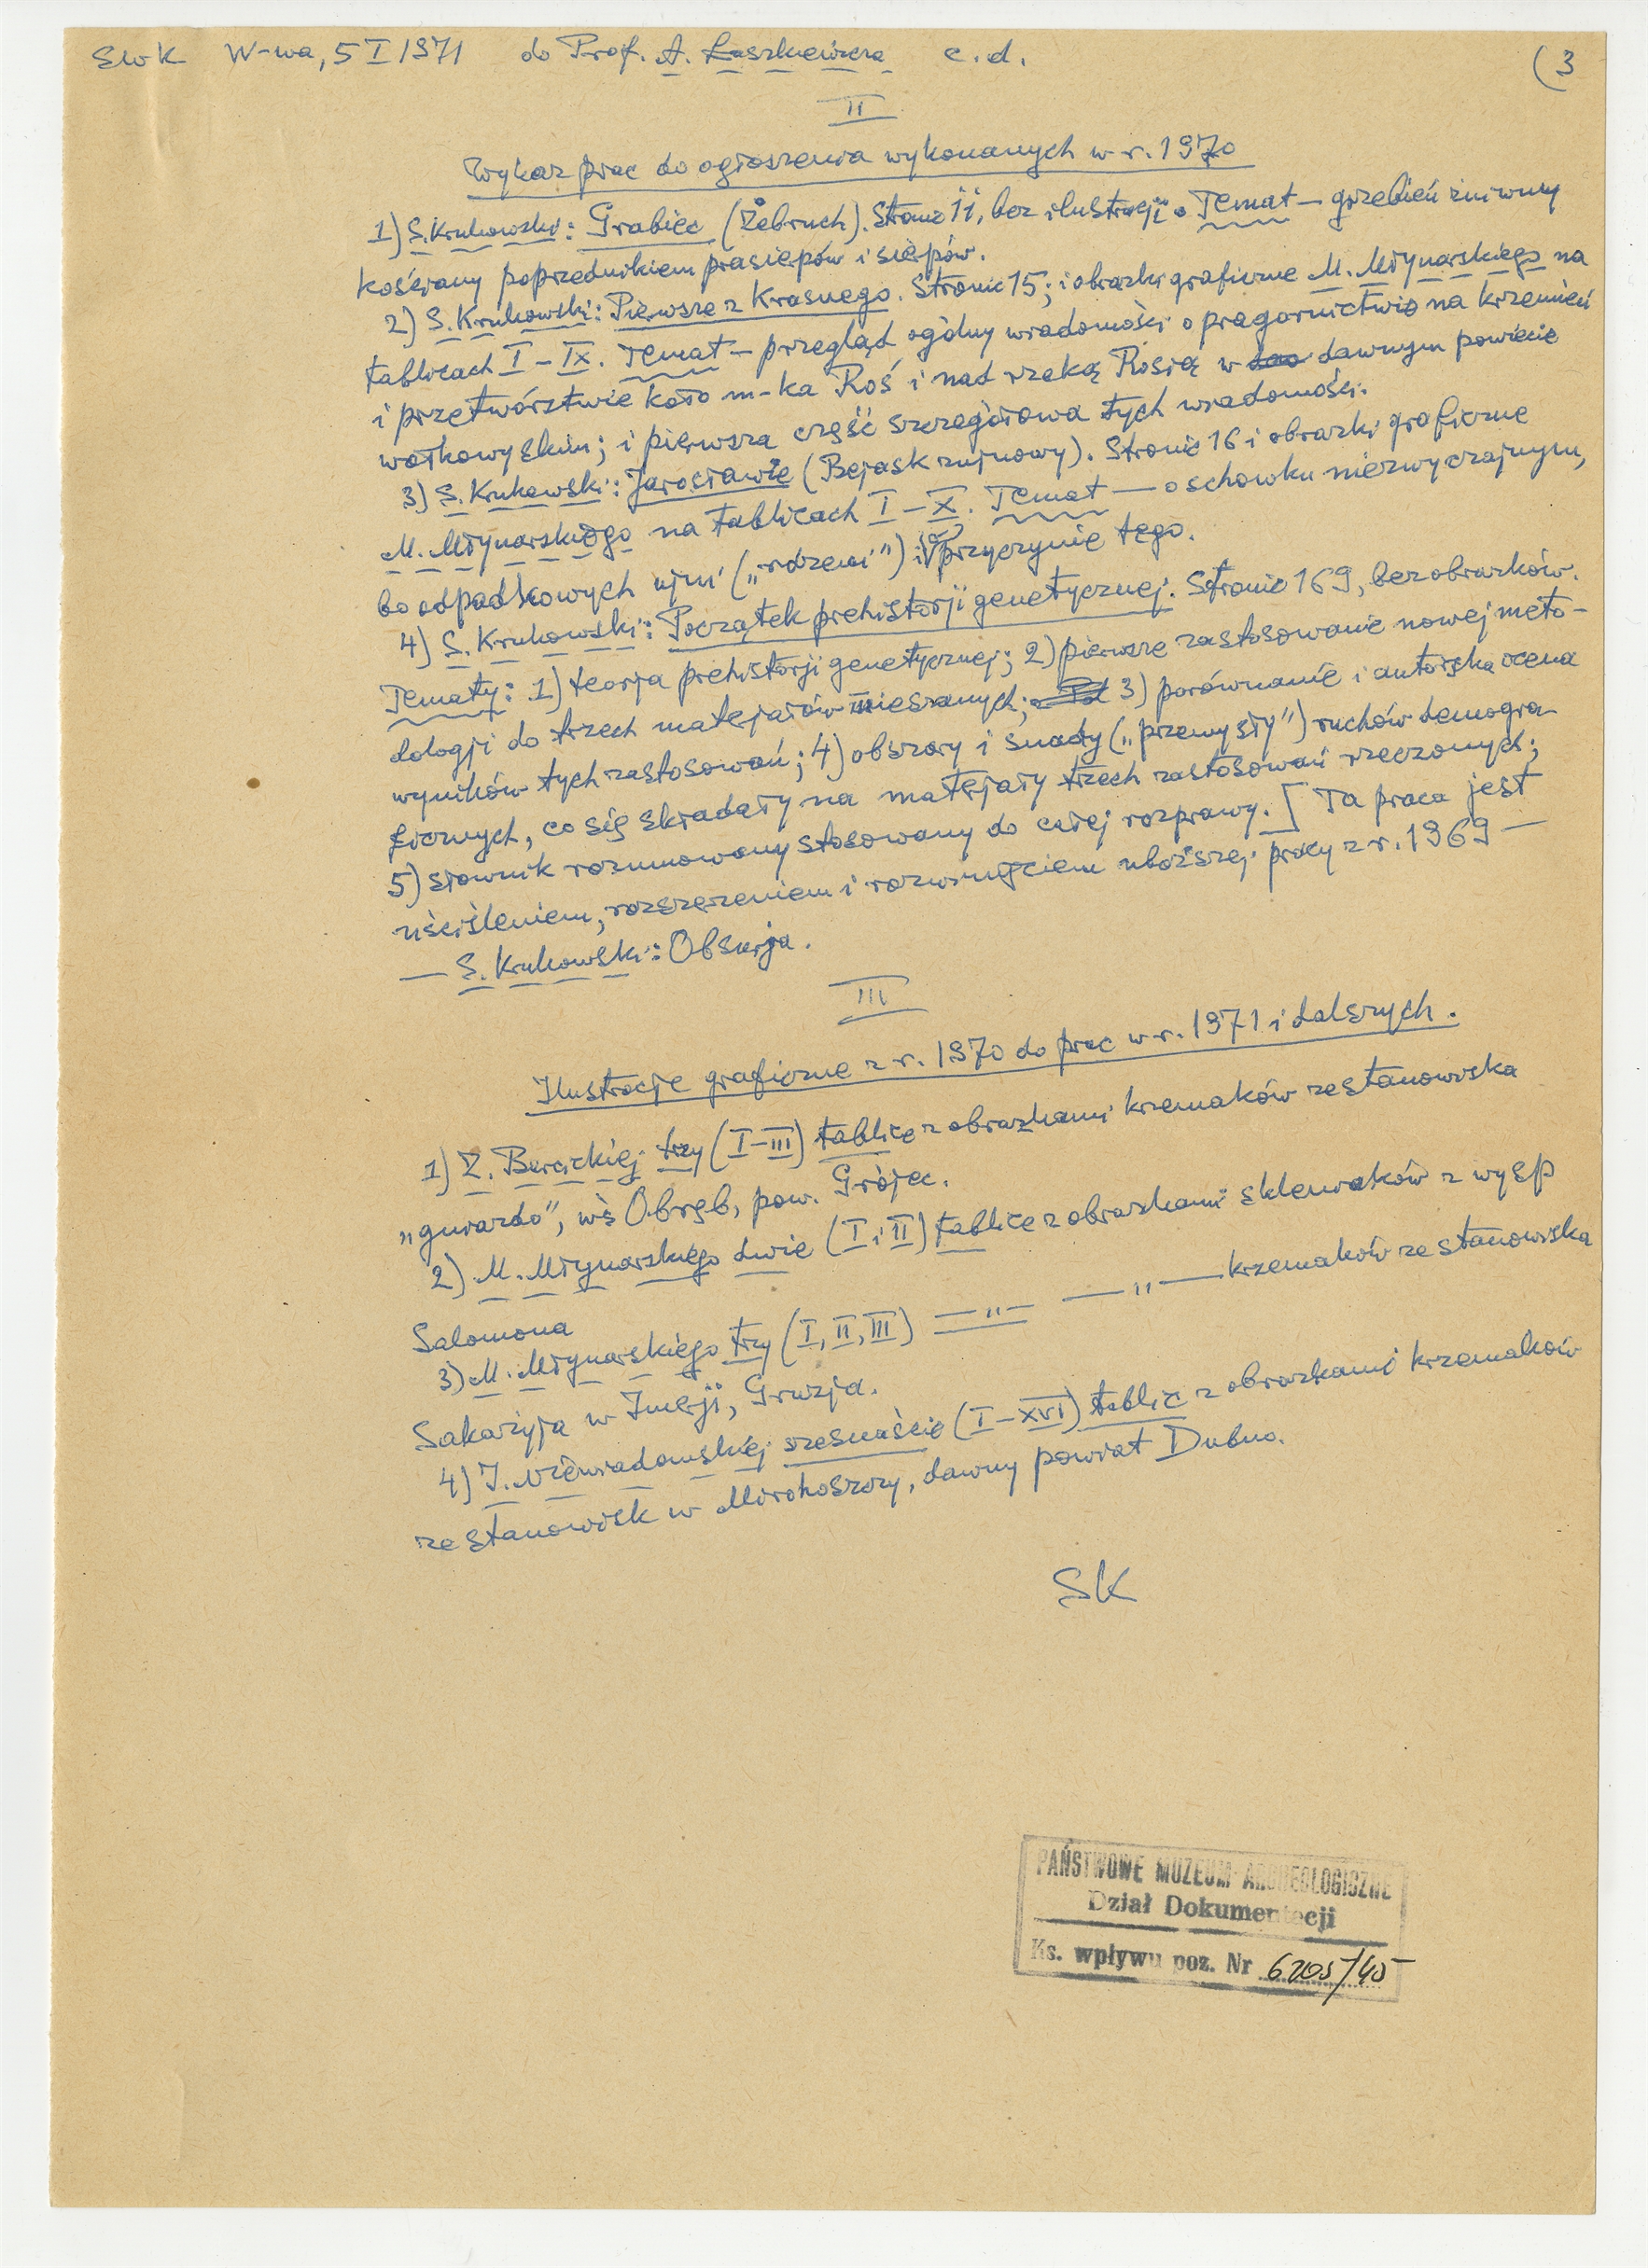 SwK W-wa, 5 I 1971 do Prof. A. Łaszkiewicza c.d. (3
II
Wykaz prac do ogłoszenia wykonanych w r. 1970
1) S. Krukowski: Grabiec (Żebruch). Stronic 11, bez ilustracji. Temat — grzebień żniwny
kościany poprzednikiem prasierpów i sierpów.
2) S. Krukowski: Pierwsze z Krasnego. Stronic 15; i obrazki graficzne M. Młynarskiego na
tablicach I – IX. Temat — przegląd ogólny wiadomości o pragórnictwie na krzemień
i przetwórztwie koło m-ka Roś i nad rzeką Rosią w dawnym powiecie
wołkowyskim; i pierwsza część szczegółowa tych wiadomości.
3) S. Krukowski: Jarosławie (Bejask zujnowy). Stronic 16 i obrazki graficzne
M. Młynarskiego na tablicach I – X. Temat — o schowku niezwyczajnym,
bo odpadkowych ujni („rdzeni") i przyczynie tego.
4) S. Krukowski: Początek prehistorji genetycznej. Stronic 169, bez obrazków.
Tematy: 1) teorja prehistorji genetycznej; 2) pierwsze zastosowanie nowej meto-
dologji do trzech materjałów mieszanych; 3) porównanie i autorska ocena
wyników tych zastosowań; 4) obszary i snady („przemysły") ruchów demogra-
ficznych, co się składały na materjały trzech zastosowań rzeczonych;
5) słownik rozumowany stosowany do całej rozprawy. [ Ta praca jest
uściśleniem, rozszerzeniem i rozwinięciem uboższej pracy z r. 1969 —
— S. Krukowski: Obsurja.
III
Ilustracje graficzne z r. 1970 do prac w r. 1971 i dalszych.
1) Z. Bercickiej trzy (I–III) tablice z obrazkami krzemaków ze stanowiska
„gwardo", wś Obręb, pow. Grójec.
2) M. Młynarskiego dwie (I i II) tablice z obrazkami szklewaków z wysp
Salomona
3) M. Młynarskiego trzy (I, II, III) — " — — " — krzemaków ze stanowiska
Sakażyja w Imerji, Gruzja.
4) J. Niewiadomskiej szesnaście (I–XVI) tablic z obrazkami krzemaków
ze stanowisk w Mirohoszczy, dawny powiat Dubno.
SK
PAŃSTWOWE MUZEUM ARCHEOLOGICZNE
Dział Dokumentacji
Ks. wpływu poz. Nr 6205/45